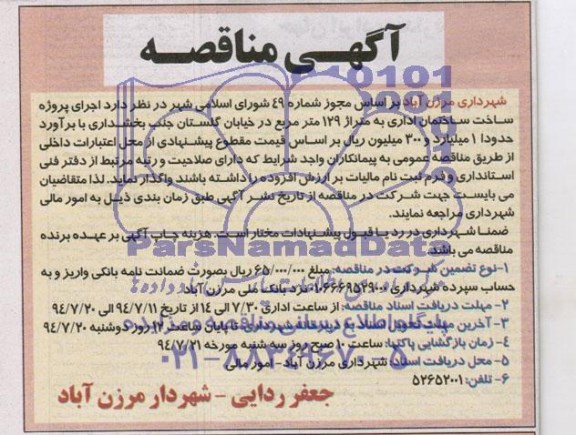 آگهی مناقصه
شهرداری مرزن آباد بر اساس مجوز شماره ٤٩ شورای اسلامی شهر در نظر دارد اجرای پروژه
ساخت ساختمان اداری به متراژ ۱۲۹ متر مربع در خیابان گلستان جنب بخشداری با برآورد
حدودا ۱ میلیارد و ۳۰۰ میلیون ریال بر اساس قیمت مقطوع پیشنهادی از محل اعتبارات داخلی
از طریق مناقصه عمومی به پیمانکاران واجد شرایط که دارای صلاحیت و رتبه مرتبط از دفتر فنی
استانداری و فرم ثبت نام مالیات بر ارزش افزوده را داشته باشند واگذار نماید. لذا متقاضیان
می بایست جهت شرکت در مناقصه از تاریخ نشر آگهی طبق زمان بندی ذیل به امور مالی
شهرداری مراجعه نمایند.
ضمنا شهرداری در رد یا قبول پیشنهادات مختار است. هزینه چاپ آگهی بر عهده برنده
مناقصه می باشد.
ParsNamadData
۱- نوع تضمین شرکت در مناقصه: مبلغ ۶۵/۰۰۰/۰۰۰ ریال بصورت ضمانت نامه بانکی واریز و به
حساب سپرده شهرداری نزد بانک ملی مرزن آباد
۲- مهلت دریافت اسناد مناقصه: از ساعت اداری ۷/۳۰ الی ۱۴ از تاریخ ۹۴/۷/۱۱ الی ۹۴/۷/۲۰
۳- آخرین مهلت تحویل اسناد به دبیرخانه شهرداری تا پایان ساعت ۱۲ روز دوشنبه ۹۴/۷/۲۰
۴- زمان بازگشایی پاکتها: ساعت ۱۰ صبح روز سه شنبه مورخه ۹۴/۷/۲۱
۵- محل دریافت اسناد: شهرداری مرزن آباد - امور مالی
۰۲۱-۸۸۳۴۹۶۷۰-۵
۶- تلفن: ۵۲۶۵۲۰۰۱
جعفر ردایی - شهردار مرزن آباد